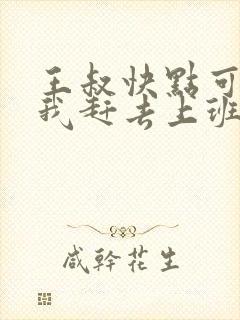 王叔快點可
我赶去上班
咸幹花生